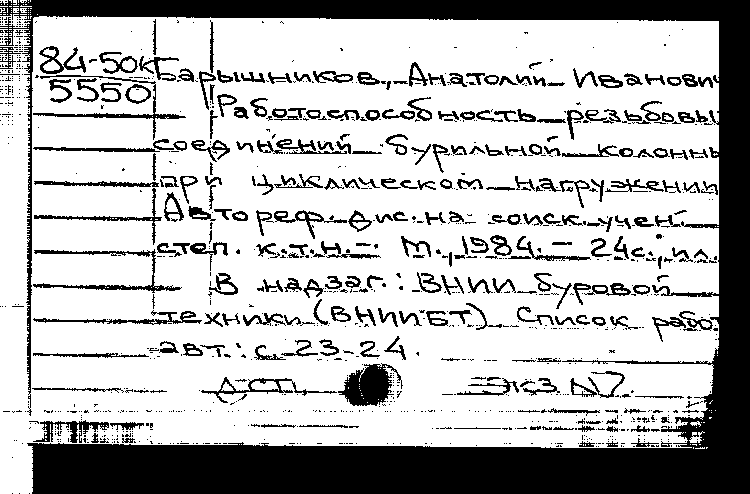 84-50к Барышников, Анатолий Иванович
5550 Работоспособность резьбовы
соединений бурильной колонны
при циклическом нагружении
Автореф. дис. на соиск. учен.
степ. к.т.н. - М., 1984. - 24с., ил.
В надзаг.: ВНИИ буровой
техники (ВНИИБТ). Список рабо
авт.: с. 23-24.
ДСП Экз N7.